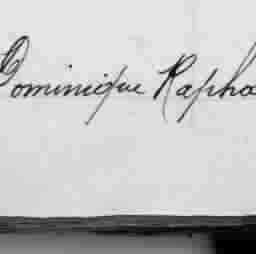 Dominique Rapha